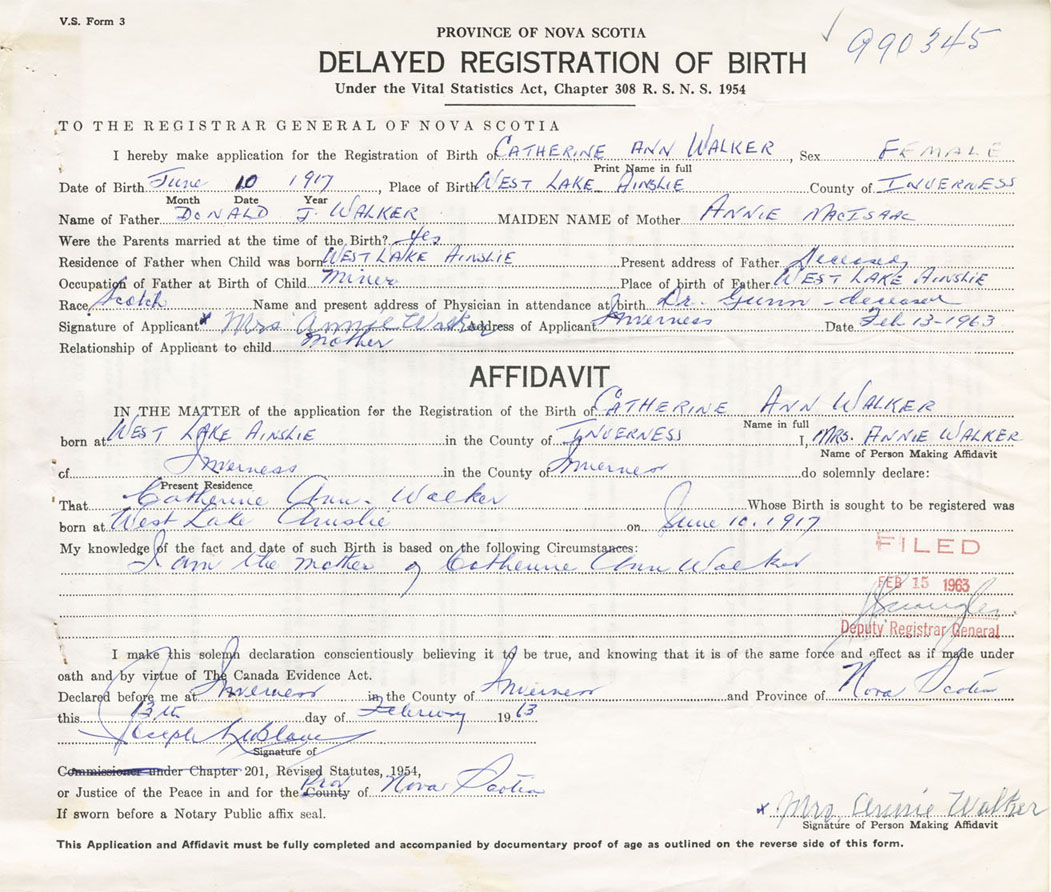 V.S. Form 3
990345
PROVINCE OF NOVA SCOTIA
DELAYED REGISTRATION OF BIRTH
Under the Vital Statistics Act, Chapter 308 R. S. N. S. 1954
TO THE REGISTRAR GENERAL OF NOVA SCOTIA
I hereby make application for the Registration of Birth of CATHERINE ANN WALKER, Sex FEMALE
Print Name in full
Date of Birth June 10 1917, Place of Birth WEST LAKE AINSLIE County of INVERNESS
Month Date Year
Name of Father DONALD J. WALKER MAIDEN NAME of Mother ANNIE MACISAAC
Were the Parents married at the time of the Birth? Yes
Residence of Father when Child was born WEST LAKE AINSLIE Present address of Father Deceased
Occupation of Father at Birth of Child Miner Place of birth of Father WEST LAKE AINSLIE
Race Scotch Name and present address of Physician in attendance at birth Dr. Gunn - deceased
Signature of Applicant x Mrs Annie Walker Address of Applicant Inverness Date Feb 13-1963
Relationship of Applicant to child mother
AFFIDAVIT
IN THE MATTER of the application for the Registration of the Birth of CATHERINE ANN WALKER
Name in full
born at WEST LAKE AINSLIE in the County of INVERNESS I, MRS. ANNIE WALKER
Name of Person Making Affidavit
of Inverness in the County of Inverness do solemnly declare:
Present Residence
That Catherine Ann Walker Whose Birth is sought to be registered was
born at West Lake Ainslie on June 10. 1917
My knowledge of the fact and date of such Birth is based on the following Circumstances:
FILED
I am the mother of Catherine Ann Walker
FEB 15 1963
Deputy Registrar General
I make this solemn declaration conscientiously believing it to be true, and knowing that it is of the same force and effect as if made under
oath and by virtue of The Canada Evidence Act.
Declared before me at Inverness in the County of Inverness and Province of Nova Scotia
this 13th day of February 1963
Joseph
Signature of
Commissioner under Chapter 201, Revised Statutes, 1954,
or Justice of the Peace in and for the County Prov of Nova Scotia
If sworn before a Notary Public affix seal.
x Mrs Annie Walker
Signature of Person Making Affidavit
This Application and Affidavit must be fully completed and accompanied by documentary proof of age as outlined on the reverse side of this form.